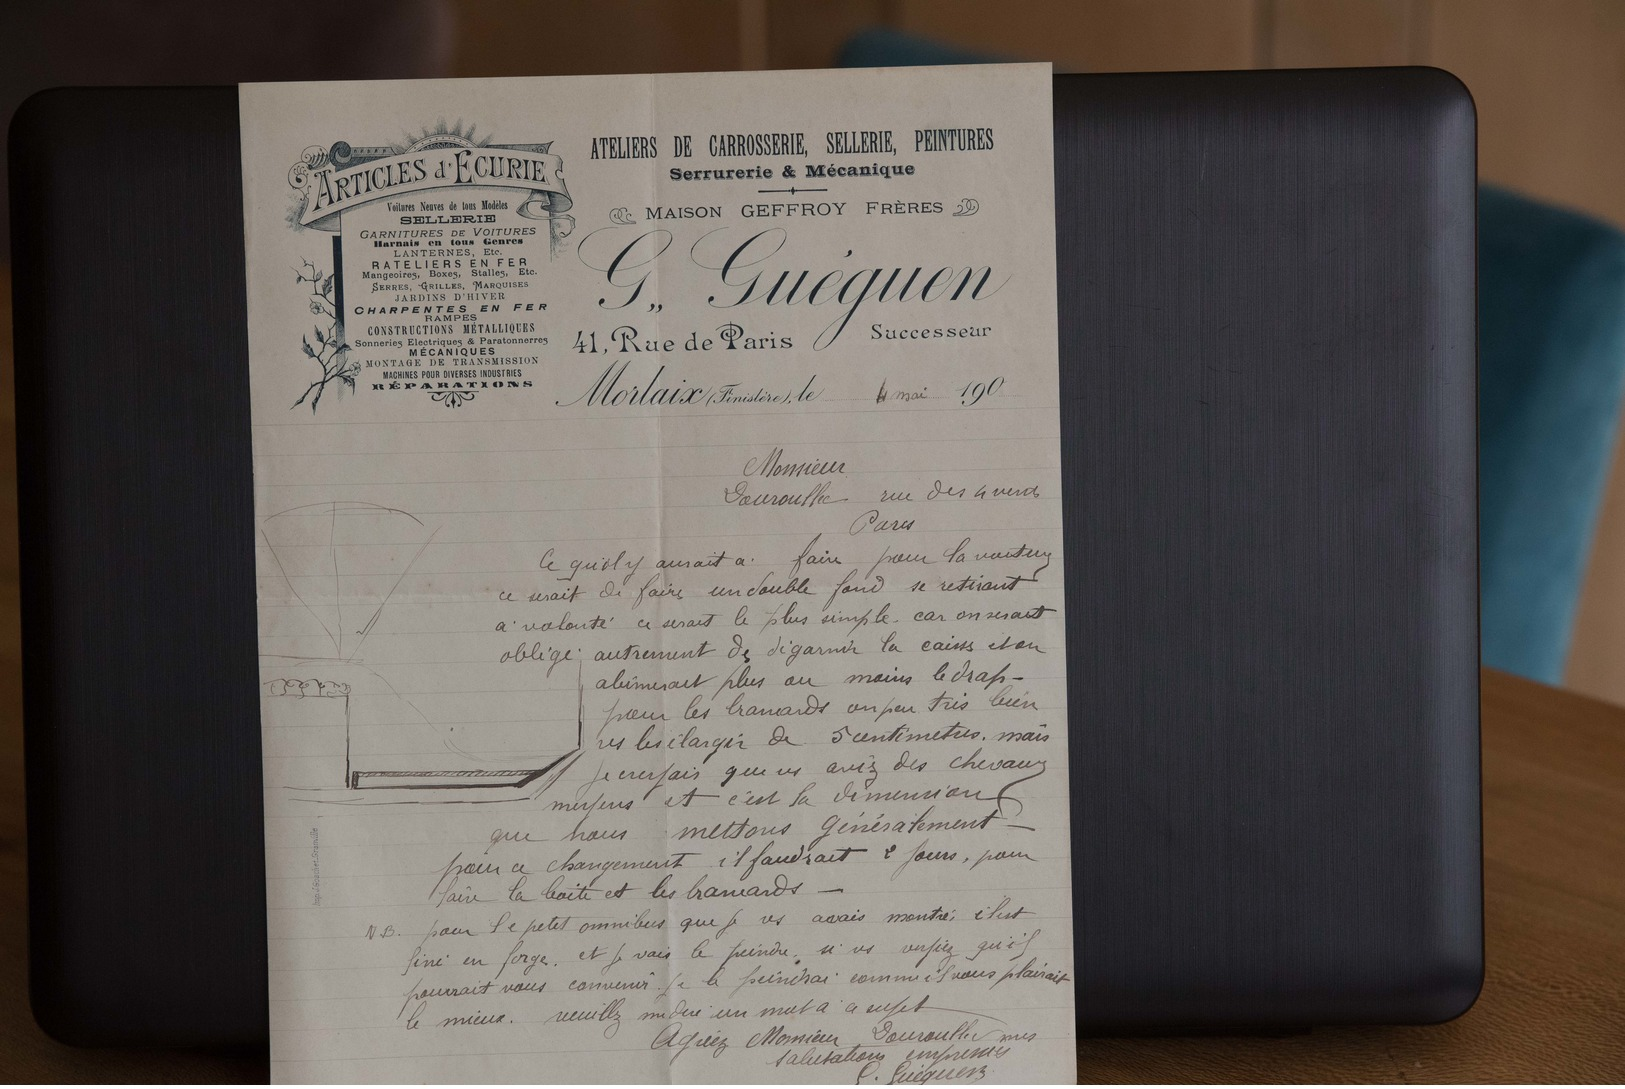 ARTICLES d'ECURIE
Voitures Neuves de tous Modèles
SELLERIE
GARNITURES DE VOITURES
Harnais en tous Genres
LANTERNES, Etc.
RATELIERS EN FER
Mangeoires, Boxes, Stalles, Etc.
SERRES, GRILLES, MARQUISES
JARDINS D'HIVER
CHARPENTES EN FER
RAMPES
CONSTRUCTIONS MÉTALLIQUES
Sonneries Electriques & Paratonnerres
MÉCANIQUES
MONTAGE DE TRANSMISSION
MACHINES POUR DIVERSES INDUSTRIES
RÉPARATIONS
ATELIERS DE CARROSSERIE, SELLERIE, PEINTURES
Serrurerie & Mécanique
MAISON GEFFROY FRÈRES
G,, Guéguen
41, Rue de Paris Successeur
Morlaix (Finistère), le mai 190
Monsieur
rue des 4 vents
Paris
Ce qu'il y aurait a faire pour la
ce serait de faire un double fond se retirant
a volonté ce serait le plus simple. car on serait
obligé autrement de dégarnir la caisse et on
abimerait plus ou moins le drap-
pour les brancards on peu très bien
vs les élargir de 5 centimetres. mais
je que vs aviez des chevaux
moyens et c'est la dimension
que nous mettons généralement
pour ce changement il faudrait 2 jours, pour
faire la boite et les brancards
NB. pour le petit omnibus que je vs avais montré, il est
fini en forge. et je vais le peindre. si vs voyiez qu'il
pourrait vous convenir. je le peindrai comme il vous plairait
le mieux. veuillez me dire un mot a ce sujet
Agréez Monsieur mes
salutations empressées
G. Guéguen